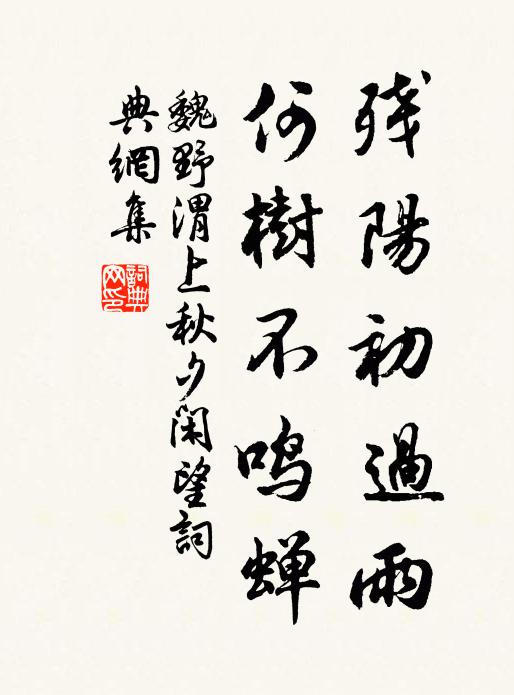 残陽初過雨
何樹不鳴蝉
魏野渭上秋夕閑望詞
典網集
詞典
网印